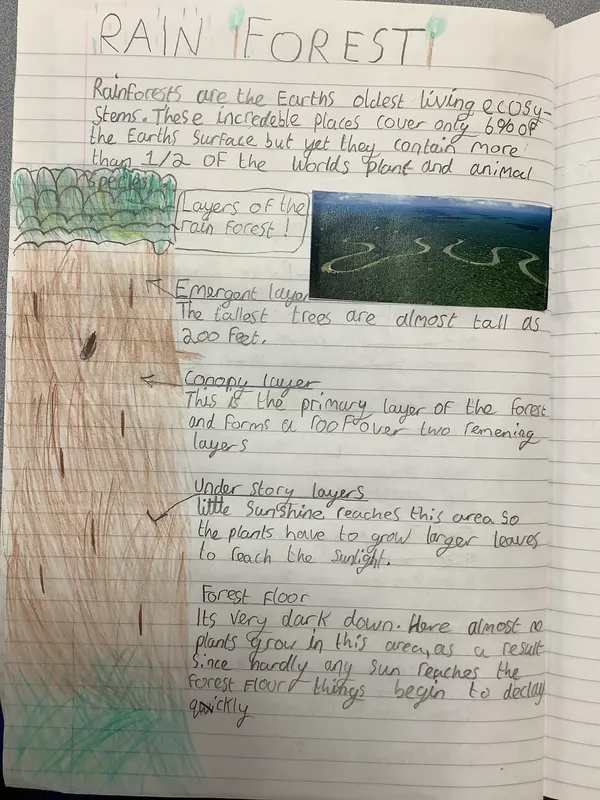 RAIN FOREST
Rainforests are the Earths oldest living ecosy-
stems. These incredeble places cover only 6% of
the Earths surface but yet they contain more
than 1/2 of the worlds plant and animal
species!
Layers of the
rain forest!
Emergent layer
The tallest trees are almost tall as
200 feet.
Canopy layer
This is the primary layer of the forest
and forms a roof over two remening
layers
Under story layers
little sunshine reaches this area so
the plants have to grow larger leaves
to reach the sunlight.
Forest floor
Its very dark down. Here almost no
plants grow in this area, as a result
Since hardly any sun reaches the
forest flour things begin to declay
quickly